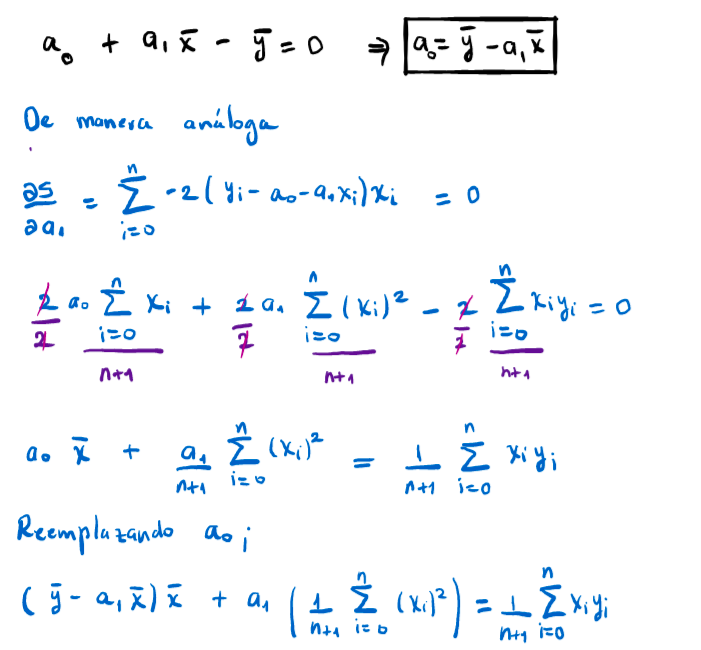 a₀ + a₁x̄ - ȳ = 0 ⇒ a₀ = ȳ - a₁x̄
De manera análoga
∂S/∂a₁ = Σ_{i=0}^{n} -2(yi - a₀ - a₁xi)xi = 0
2/2 a₀ Σ_{i=0}^{n} xi / n+1 + 2/2 a₁ Σ_{i=0}^{n} (xi)² / n+1 - 2/2 Σ_{i=0}^{n} xiyi / n+1 = 0
a₀ x̄ + a₁/n+1 Σ_{i=0}^{n} (xi)² = 1/n+1 Σ_{i=0}^{n} xiyi
Reemplazando a₀;
(ȳ - a₁x̄)x̄ + a₁ (1/n+1 Σ_{i=0}^{n} (xi)²) = 1/n+1 Σ_{i=0}^{n} xiyi